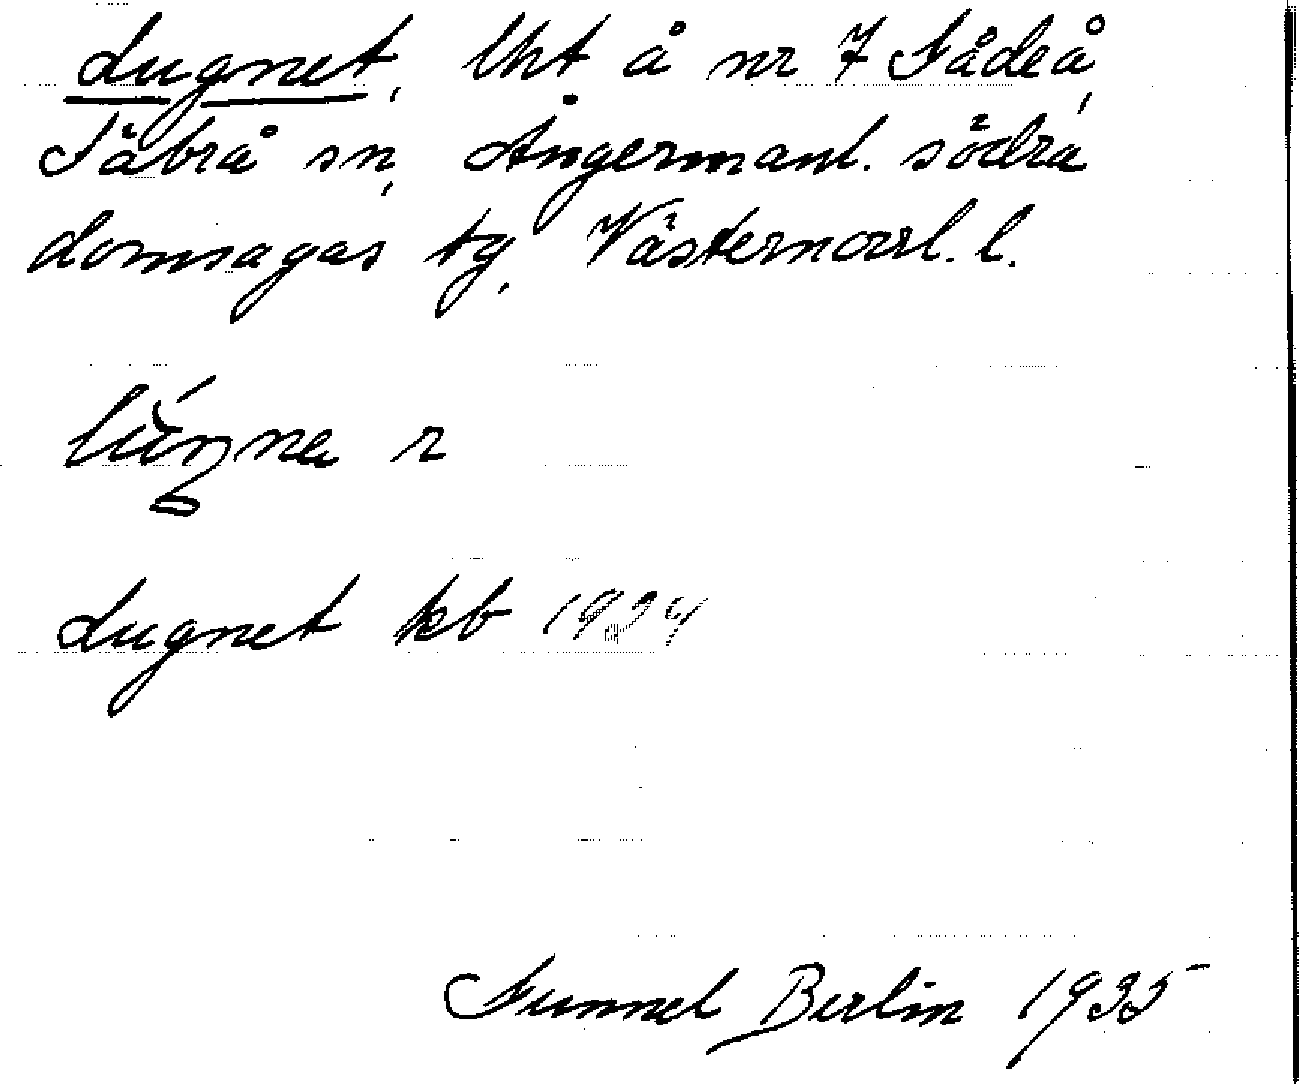 Lugnet, lht å nr 7 Fådeå,
Säbrå sn, Ångermanl. södra
domsagas tg, Västernorrl. l.
Lugnet kb 1924
Gunnel Berlin 1935